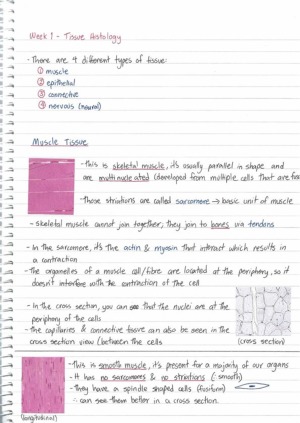 Week 1 - Tissue Histology
- There are 4 different types of tissue:
① muscle
② epithelial
③ connective
④ nervous (neural)
Muscle Tissue
- this is skeletal muscle, it's usually parallel in shape and
are multinucleated (developed from multiple cells that are
Those striations are called sarcomere → basic unit of muscle
- skeletal muscle cannot join together; they join to bones via tendons
- In the sarcomere, it's the actin & myosin that interact which results in
a contraction
- The organelles of a muscle cell/fibre are located at the periphery, so it
doesn't interfere with the contraction of the cell
- In the cross section, you can see that the nuclei are at the
periphery of the cells
- the capillaries & connective tissue can also be seen in the
cross section view (between the cells
(cross section)
- this is smooth muscle, it's present for a majority of our organs
- It has no sarcomeres & no striations (∴ smooth)
- they have a spindle shaped cells (fusiform)
∴ can see them better in a cross section.
(longitudinal)